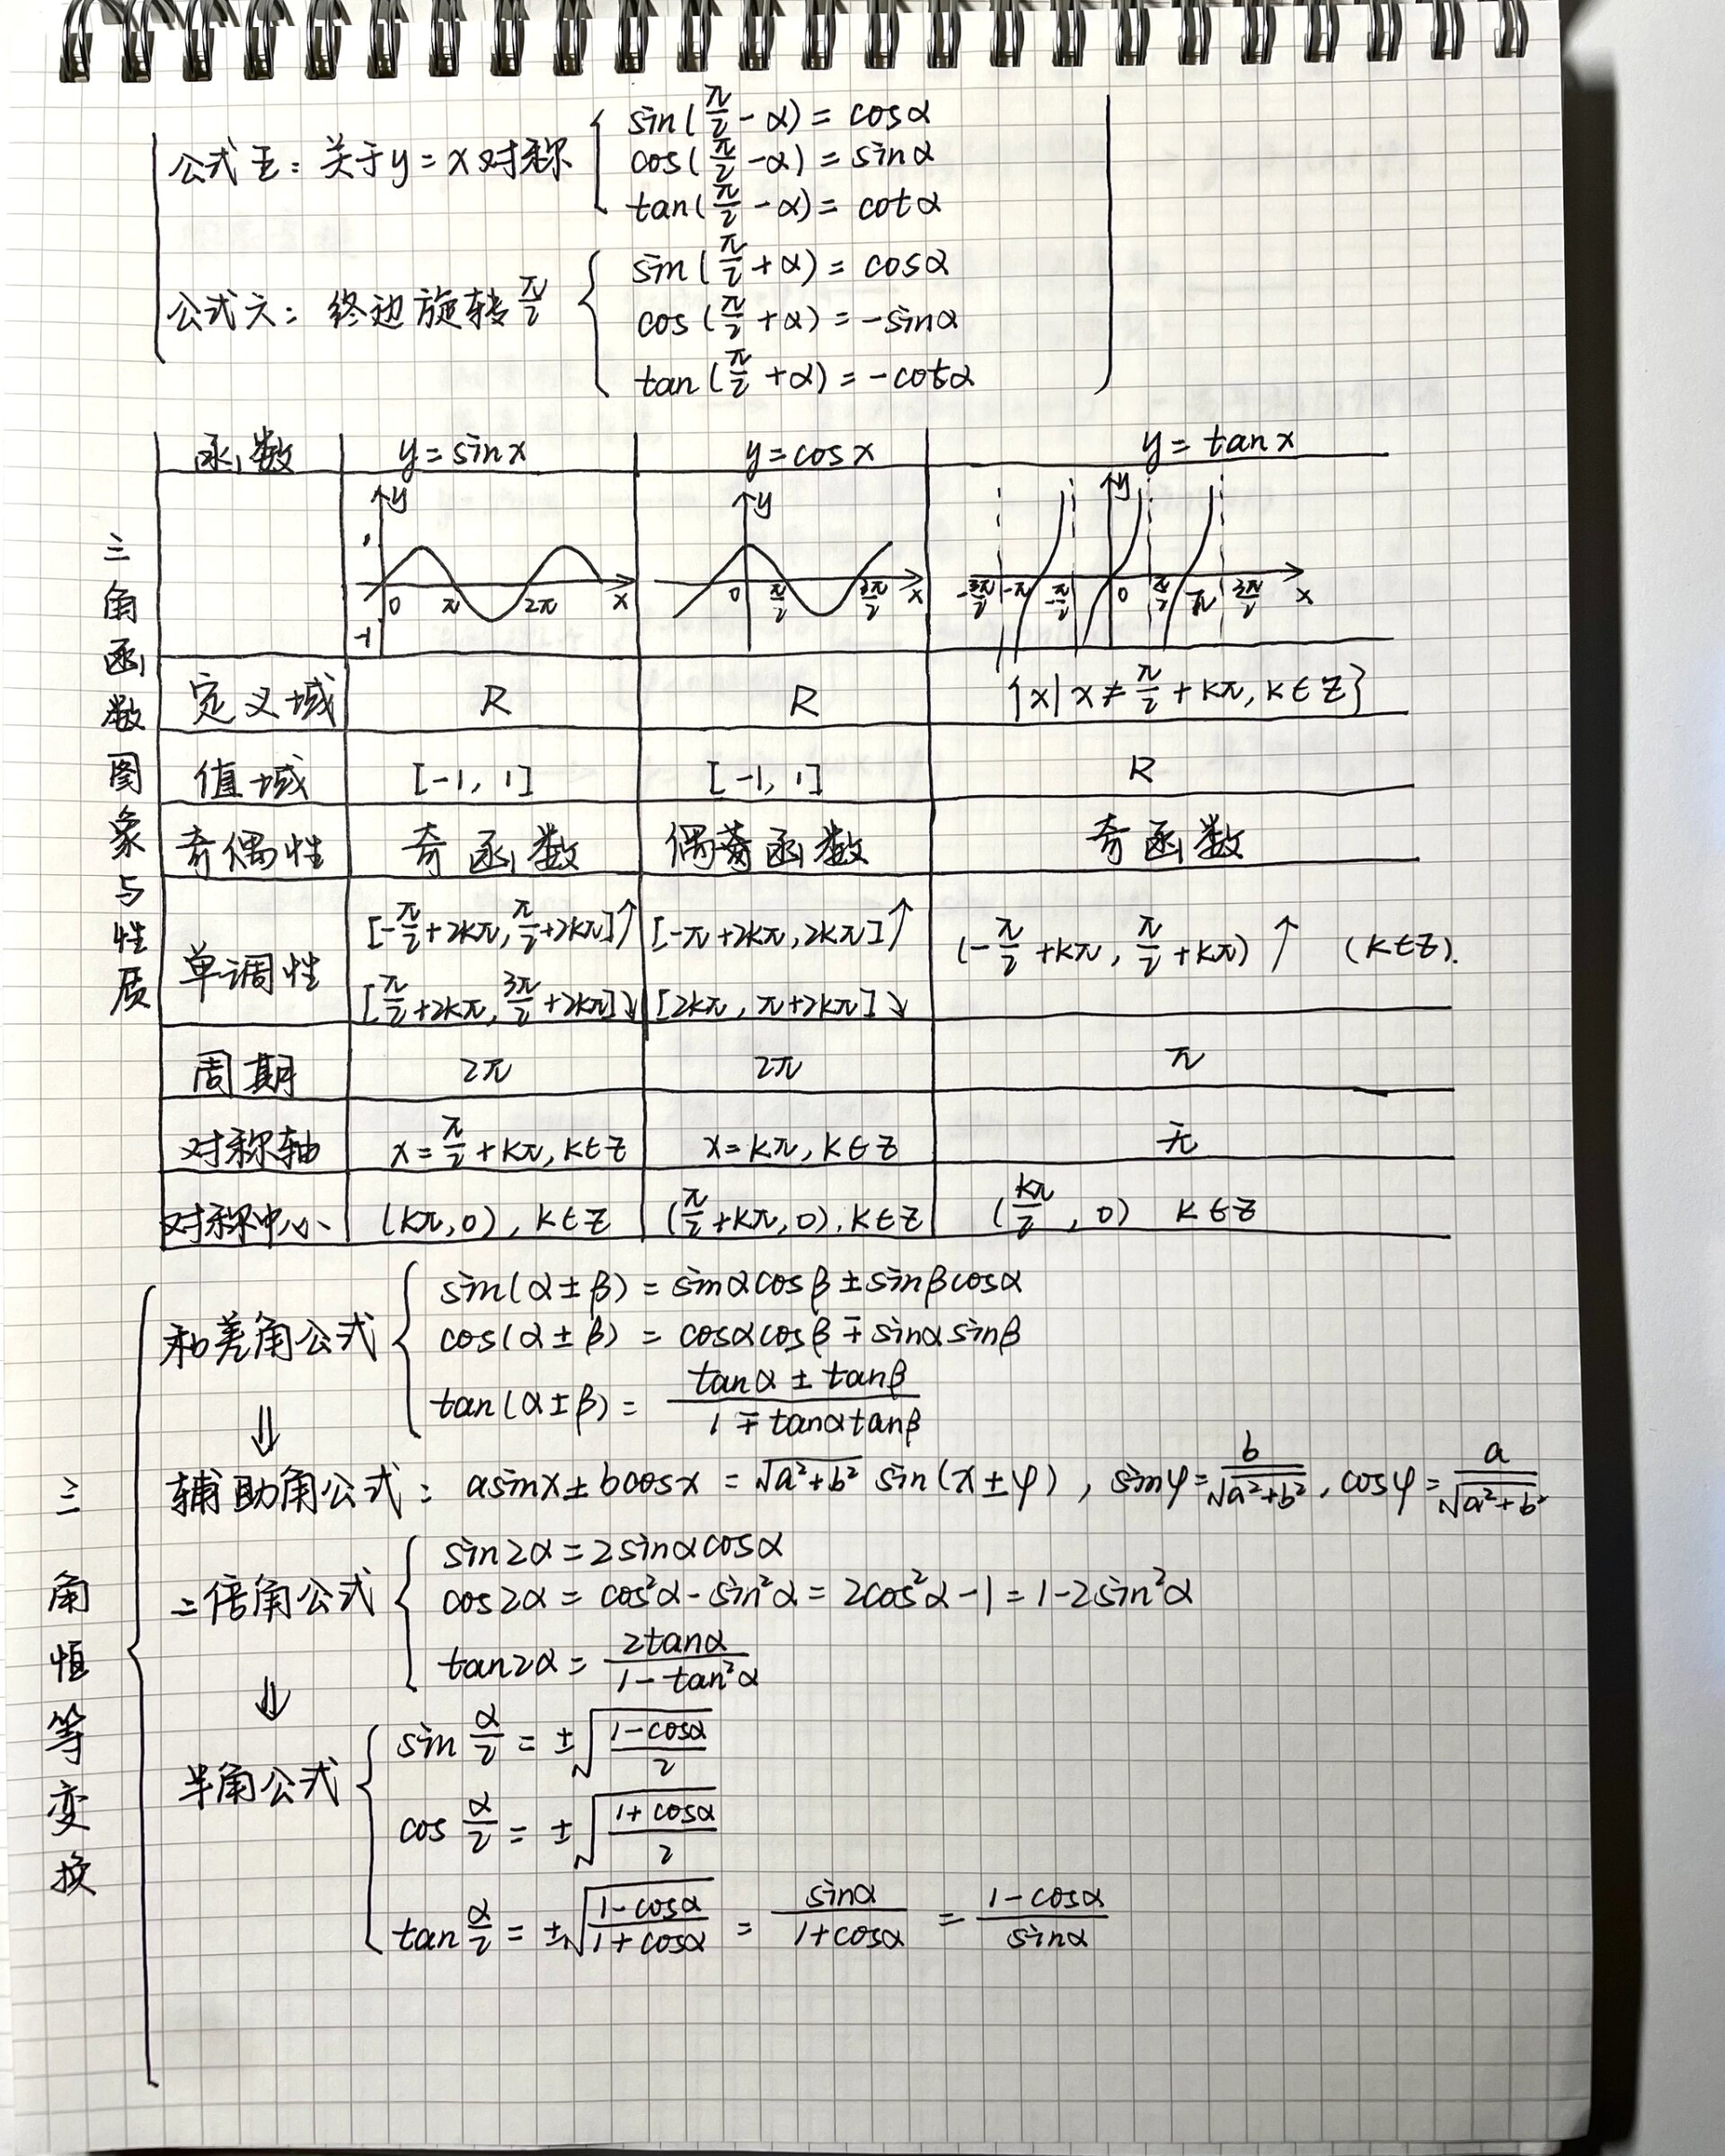 公式五：关于y=x对称
sin(π/2-α)=cosα
cos(π/2-α)=sinα
tan(π/2-α)=cotα
公式六：终边旋转π/2
sin(π/2+α)=cosα
cos(π/2+α)=-sinα
tan(π/2+α)=-cotα
三角函数图象与性质
函数 y=sinx y=cosx y=tanx
y y y
1
0 π 2π x 0 π/2 3π/2 x -3π/2 -π -π/2 0 π/2 π 3π/2 x
-1
定义域 R R {x|x≠π/2+kπ,k∈Z}
值域 [-1,1] [-1,1] R
奇偶性 奇函数 偶函数 奇函数
单调性 [-π/2+2kπ,π/2+2kπ]↑ [-π+2kπ,2kπ]↑ (-π/2+kπ,π/2+kπ)↑ (k∈Z).
[π/2+2kπ,3π/2+2kπ]↘ [2kπ,π+2kπ]↘
周期 2π 2π π
对称轴 x=π/2+kπ,k∈Z x=kπ,k∈Z 无
对称中心 (kπ,0),k∈Z (π/2+kπ,0),k∈Z (kπ/2,0) k∈Z
三角恒等变换
和差角公式
sin(α±β)=sinαcosβ±sinβcosα
cos(α±β)=cosαcosβ∓sinαsinβ
tan(α±β)=(tanα±tanβ)/(1∓tanαtanβ)
⇓
辅助角公式：asinx±bcosx=√(a²+b²) sin(x±φ), sinφ=b/√(a²+b²), cosφ=a/√(a²+b²)
二倍角公式
sin2α=2sinαcosα
cos2α=cos²α-sin²α=2cos²α-1=1-2sin²α
tan2α=2tanα/(1-tan²α)
⇓
半角公式
sin α/2=±√((1-cosα)/2)
cos α/2=±√((1+cosα)/2)
tan α/2=±√((1-cosα)/(1+cosα))=sinα/(1+cosα)=(1-cosα)/sinα